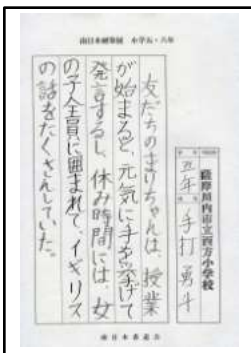 南日本硬筆展　小学五・六年
友だちのまりちゃんは、授業
が始まると、元気に手を挙げて
発言するし、休み時間には、女
の子全員に囲まれて、イギリス
の話をたくさんしていた。
薩摩川内市立西方小学校
五年　手打勇斗
南日本書道会